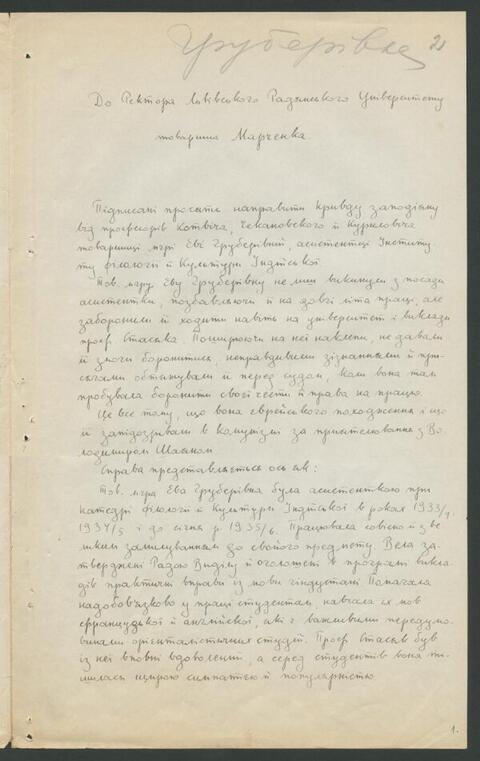 Груберівна 2
До Ректора Львівського Радянського Університету
товариша Марченка
Підписані просять направити кривду заподіяну
від професорів Котвіча, Чекановського й Куриловіча
товаришці мґрі Еві Ґруберівні, асистентці Інститу
ту філології й Культури Індійської
Тов. мґру Еву Груберівну не лиш викинули з посади
асистентки, позбавляючи її на довгі літа праці, але
заборонили їй ходити навіть на університет і виклади
проф. Стасяка. Поширюючи на неї наклепи, не давали
їй змоги боронитись, неправдивими зізнаннями й при-
сягами обтяжували її перед судом, коли вона там
пробувала боронити своєї чести й права на працю.
Це все тому, що вона єврейського походження і що
її запідозрівали в комунізмі за приятелювання з Во-
лодимиром Шаяном
Справа представляється ось як:
Тов. мґра Ева Груберівна була асистенткою при
катедрі філології й Культури Індійської в роках 1933/4,
1934/5 і до січня р. 1935/6. Працювала совісно й з ве-
ликим замилуванням до свойого предмету. Вела за-
тверджені Радою Виділу й оголошені в програмі викла-
дів практичні вправи із мови гіндустані Помагала
надобов'язково у праці студентам, навчала їх мов
французької й англійської, які є важливими передумо-
винами орієнталістичних студій. Проф. Стасяк був
із неї вповні вдоволений, а серед студентів вона ті-
шилась щирою симпатією й популярністю
1.